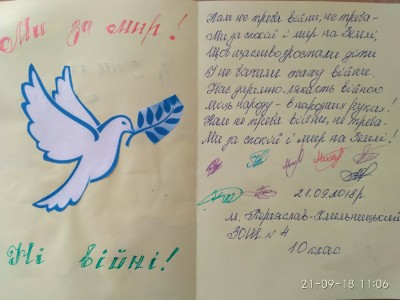 Ми за мир!
Ні війні!
Нам не треба війни, не треба-
Ми за спокій і мир на Землі,
Щоб щасливо зростали діти
І не бачили жаху війни.
Нас даремно лякають війною
міць народу - в народних руках!
Нам не треба війни, не треба-
Ми за спокій і мир на Землі!
21.09.2018р
м. Переяслав-Хмельницький
ЗОШ № 4
10 клас
21-09-18 11:06